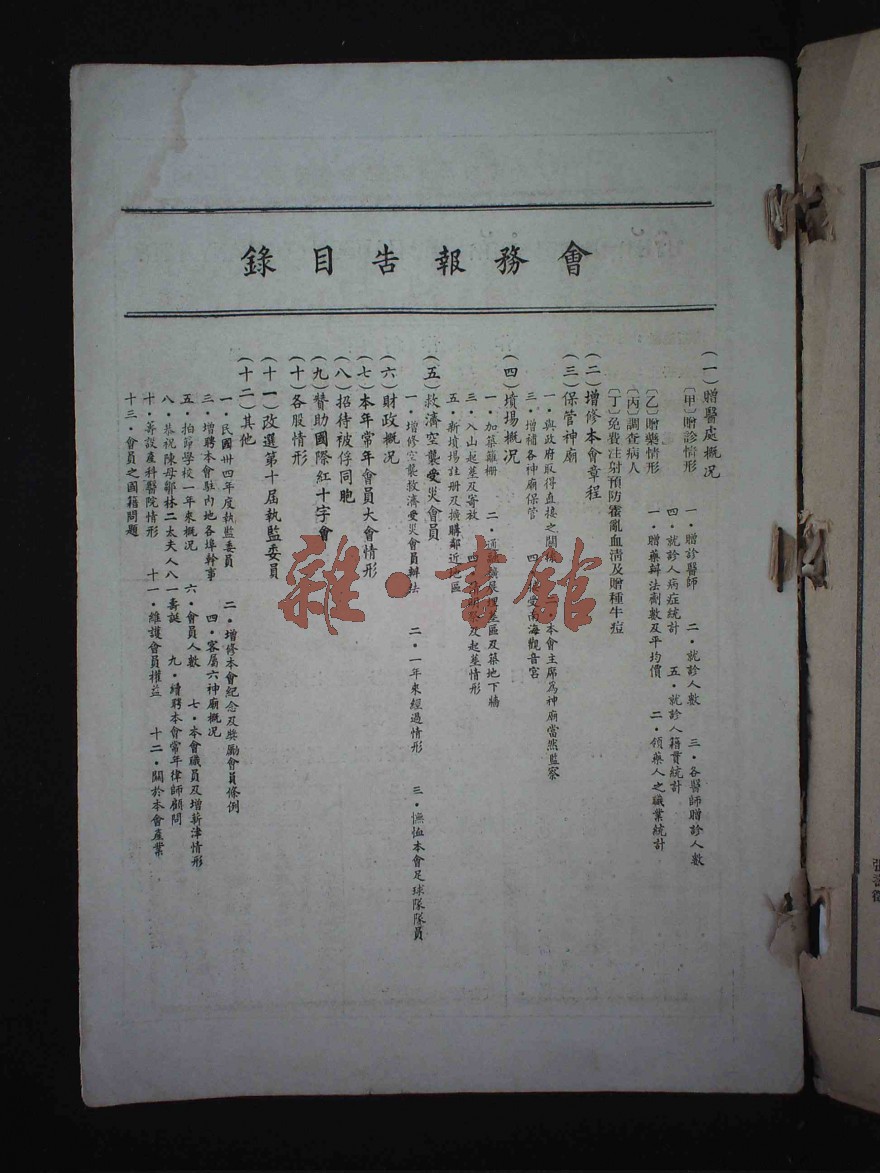 會務報告目錄
(一)贈醫處概况
〔甲〕贈診情形
一・贈診醫師 二・就診人數 三・各醫師贈診人數
四・就診人病症統計 五・就診人籍貫統計
〔乙〕贈藥情形
一・贈藥辦法劑數及平均價 二・領藥人之職業統計
〔丙〕調查病人
〔丁〕免費注射預防霍亂血淸及贈種牛痘
(二)增修本會章程
(三)保管神廟
一・與政府取得直接之關係 本會主席爲神廟當然監察
三・增補各神廟保管 四・接受南海觀音宮
(四)墳場概况
一・加築籬柵 二・通 擴展 區及築地下牆
三・入山起墓及寄放 四・ 及起墓情形
五・新墳場註册及擴購鄰近地區
(五)救濟空襲受災會員
一・增修空襲救濟受災會員辦法 二・一年來經過情形 三・憮恤本會足球隊隊員
(六)財政概况
(七)本年常年會員大會情形
(八)招待被俘同胞
(九)贊助國際紅十字會
(十)各股情形
(十一)改選第十屆執監委員
(十二)其他
一・民國卅四年度執監委員 二・增修本會紀念及獎勵會員條例
三・增聘本會駐內地各埠幹事 四・客屬六神廟概况
五・拍 學校一年來概况 六・會員人數 七・本會職員及增薪津情形
八・恭祝陳母鄒林二太夫人八一壽誕 九・續聘本會常年律師顧問
十・籌設產科醫院情形 十一・維護會員權益 十二・關於本會產業
十三・會員之國籍問題
雜・書館
張善徵